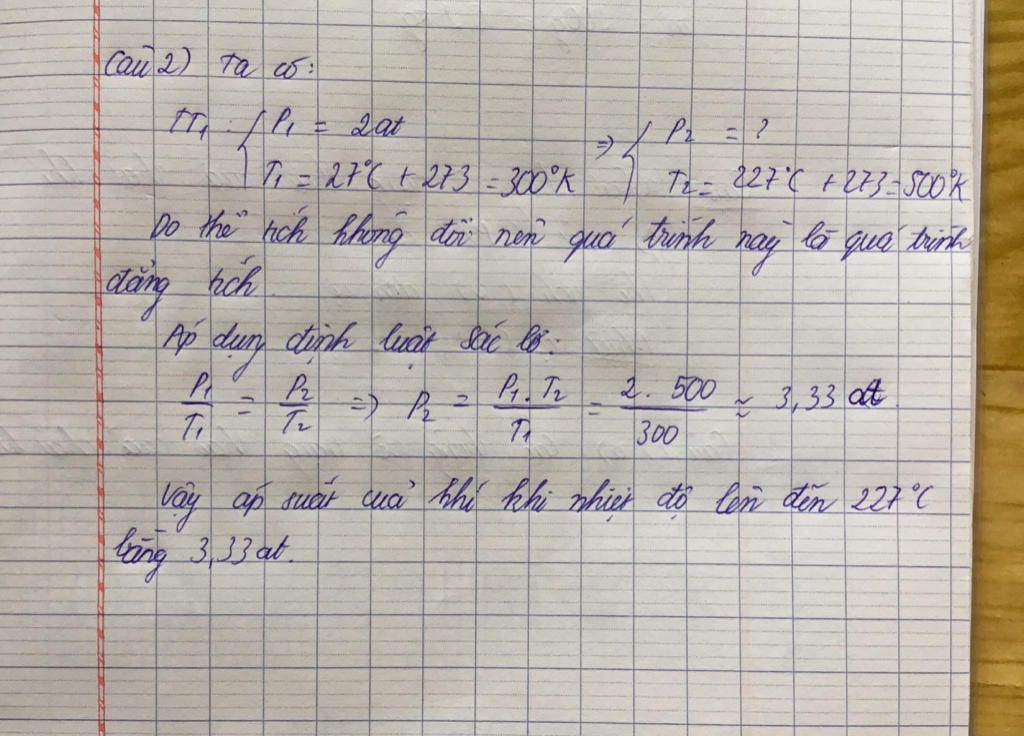 Câu 2) Ta có:
TT₁ : { P₁ = 2at ⇒ { P₂ = ?
T₁ = 27°C + 273 = 300°K T₂ = 227°C + 273 = 500°K
Do thể tích không đổi nên quá trình này là quá trình
đẳng tích.
Áp dụng định luật Sác lơ:
P₁/T₁ = P₂/T₂ ⇒ P₂ = P₁.T₂/T₁ = 2.500/300 ≈ 3,33 at.
Vậy áp suất của khí khi nhiệt độ lên đến 227°C
bằng 3,33at.